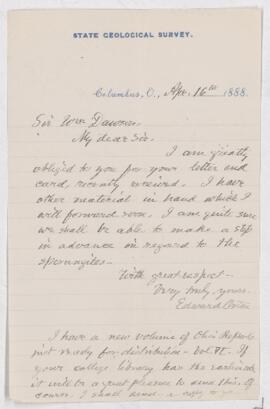 STATE GEOLOGICAL SURVEY.
Columbus, O., Apr. 16th 1888.
Sir Wm Dawson
My dear Sir.
I am greatly
obliged to you for your letter and
card, recently received. I have
other material in hand which I
will forward soon. I am quite sure
we shall be able to make a step
in advance in regard to the
sporangites.
With great respect -
Very truly yours.
Edward Orton
I have a new volume of Ohio Reports
just ready for distribution - Vol. VI. If
your college library has the earlier
it will be a great pleasure to send this. Of
course, I shall send a copy to